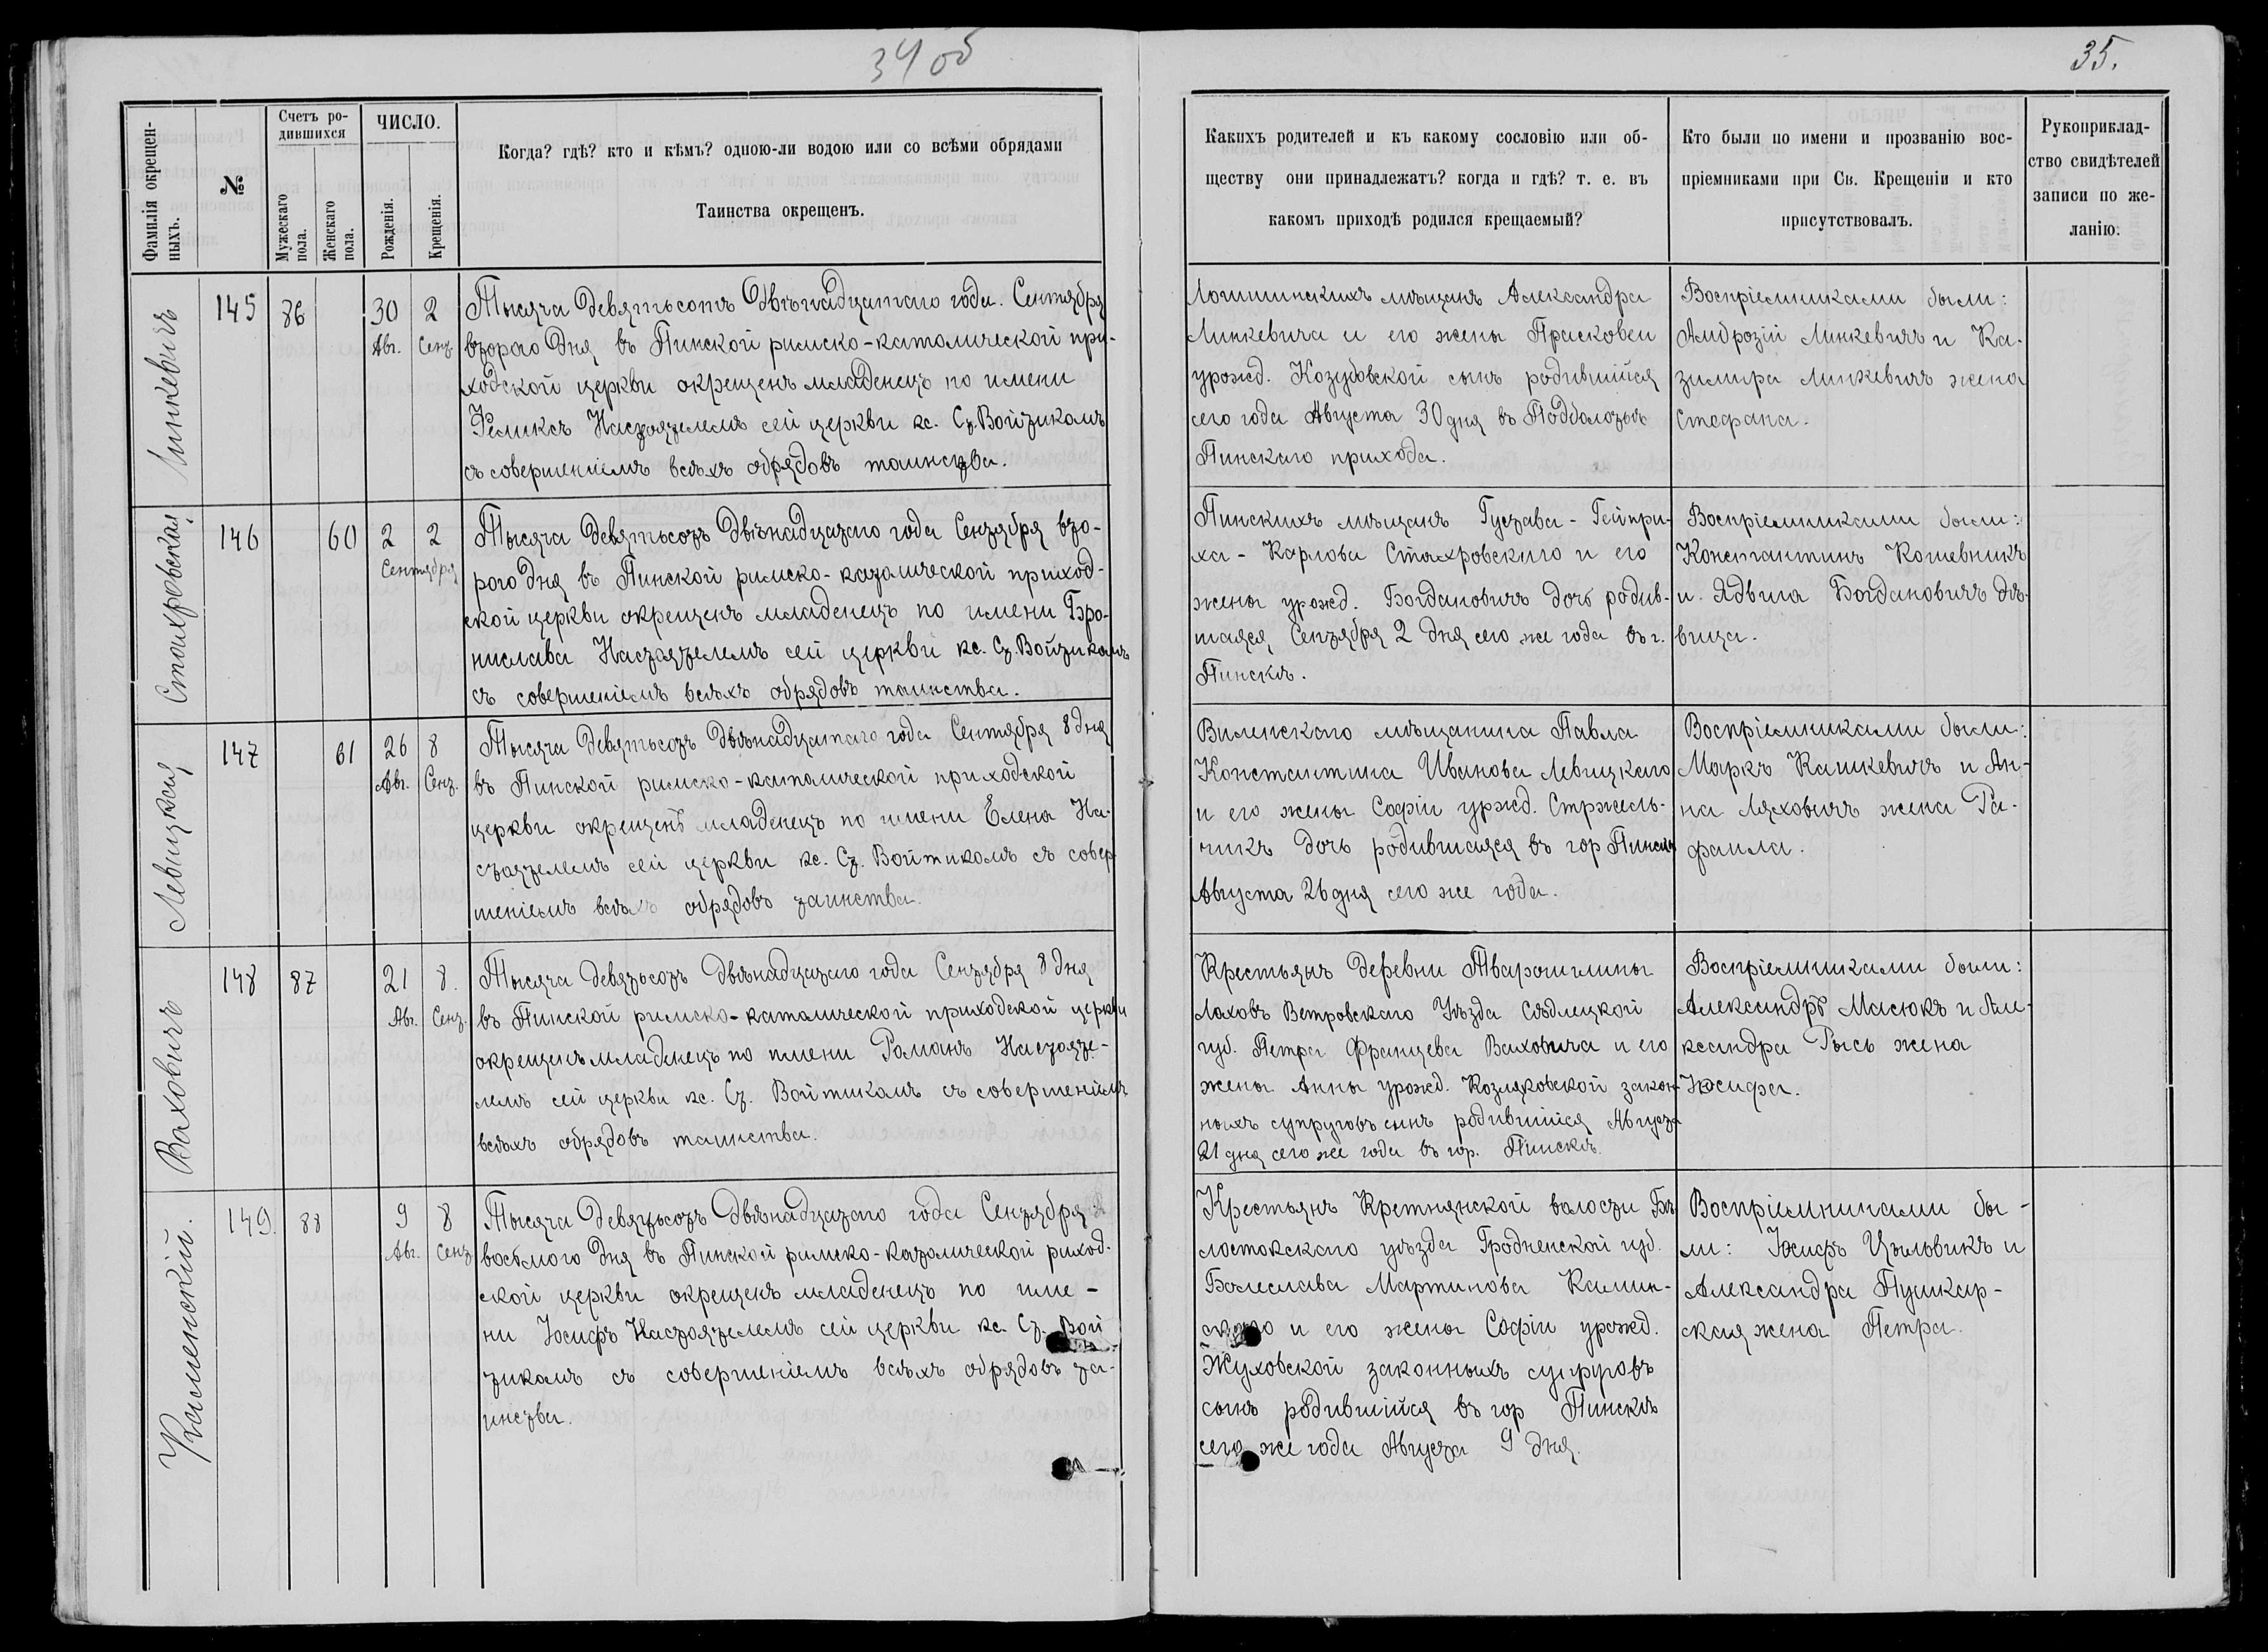 34 об
35.
Фамилія окрещен-
ныхъ.
№
Счетъ ро-
дившихся
Мужескаго
пола.
Женскаго
пола.
ЧИСЛО.
Рожденія.
Крещенія.
Когда? гдѣ? кто и кѣмъ? одною-ли водою или со всѣми обрядами
Таинства окрещенъ.
Какихъ родителей и къ какому сословію или об-
ществу они принадлежатъ? когда и гдѣ? т. е. въ
какомъ приходѣ родился крещаемый?
Кто были по имени и прозванію вос-
пріемниками при Св. Крещеніи и кто
присутствовалъ.
Рукоприклад-
ство свидѣтелей
записи по же-
ланію.
Линкевичъ
145
86
30
Авг.
2
Сент
Тысяча девятьсотъ двѣнадцатаго года Сентября
второго дня въ Пинской римско-католической при-
ходской церкви окрещенъ младенецъ по имени
Феликсъ Настоятелемъ сей церкви кс. Ст. Войтикомъ
съ совершеніемъ всѣхъ обрядовъ таинства.
Логишинскихъ мѣщанъ Александра
Линкевича и его жены Прасковеи
урожд. Козубовской сынъ родившійся
сего года Августа 30 дня въ
Пинскаго прихода.
Воспріемниками были:
Амброзій Линкевичъ и Ка-
зимира Линкевичъ жена
Стефана.
Стахровская
146
60
2
2
Сентября
Тысяча девятьсотъ двѣнадцатаго года Сентября вто-
рого дня въ Пинской римско-католической приход-
ской церкви окрещенъ младенецъ по имени Бро-
нислава Настоятелемъ сей церкви кс. Ст. Войтикомъ
съ совершеніемъ всѣхъ обрядовъ таинства.
Пинскихъ мѣщанъ Густава-Гейнри-
ха-Карлова Стахровскаго и его
жены урожд. Богдановичъ дочь родив-
шаяся Сентября 2 дня сего же года въ г.
Пинскѣ.
Воспріемниками были:
Константинъ Кошевникъ
и Ядвига Богдановичъ дѣ-
вица.
Левицкая
147
61
26
Авг.
8
Сент.
Тысяча девятьсотъ двѣнадцатаго года Сентября 8 дня
въ Пинской римско-католической приходской
церкви окрещенъ младенецъ по имени Елена На-
стоятелемъ сей церкви кс. Ст. Войтикомъ съ совер-
шеніемъ всѣхъ обрядовъ таинства.
Виленскаго мѣщанина Павла
Константина Иванова Левицкаго
и его жены Софіи уржд. Стржель-
чикъ дочь родившаяся въ гор Пинскѣ
Августа 26 дня сего же года.
Воспріемниками были:
Маркъ Кашкевичъ и Ан-
на Ляховичъ жена Ра-
фаила.
Ваховичъ
148
87
21
Авг.
8.
Сент.
Тысяча девятьсотъ двѣнадцатаго года Сентября 8 дня
въ Пинской римско-католической приходской церкви
окрещенъ младенецъ по имени Романъ Настояте-
лемъ сей церкви кс. Ст. Войтикомъ съ совершеніемъ
всѣхъ обрядовъ таинства.
Крестьянъ деревни
уѣзда Сѣдлецкой
губ. Петра Францева Ваховича и его
жены Анны урожд. Козляковской закон-
ныхъ супруговъ сынъ родившійся Августа
21 дня сего же года въ гор. Пинскѣ.
Воспріемниками были:
Александръ Масюкъ и Але-
ксандра Рысь жена
Іосифа.
Каменскій.
149.
88
9
Авг.
8
Сент
Тысяча девятьсотъ двѣнадцатаго года Сентября
восьмого дня въ Пинской римско-католической риход-
ской церкви окрещенъ младенецъ по име-
ни Іосифъ Настоятелемъ сей церкви кс. Ст. Вой
тикомъ съ совершеніемъ всѣхъ обрядовъ та-
инства.
Крестьянъ волости Бѣ-
лостокскаго уѣзда Гродненской губ.
Болеслава Мартинова Камин-
скаго и его жены Софіи урожд.
Жуховской законныхъ супруговъ
сынъ родившійся въ гор Пинскѣ
сего же года Августа 9 дня.
Воспріемниками бы-
ли: Іосифъ Цѣльвикъ и
Александра Пушкар-
ская жена Петра.